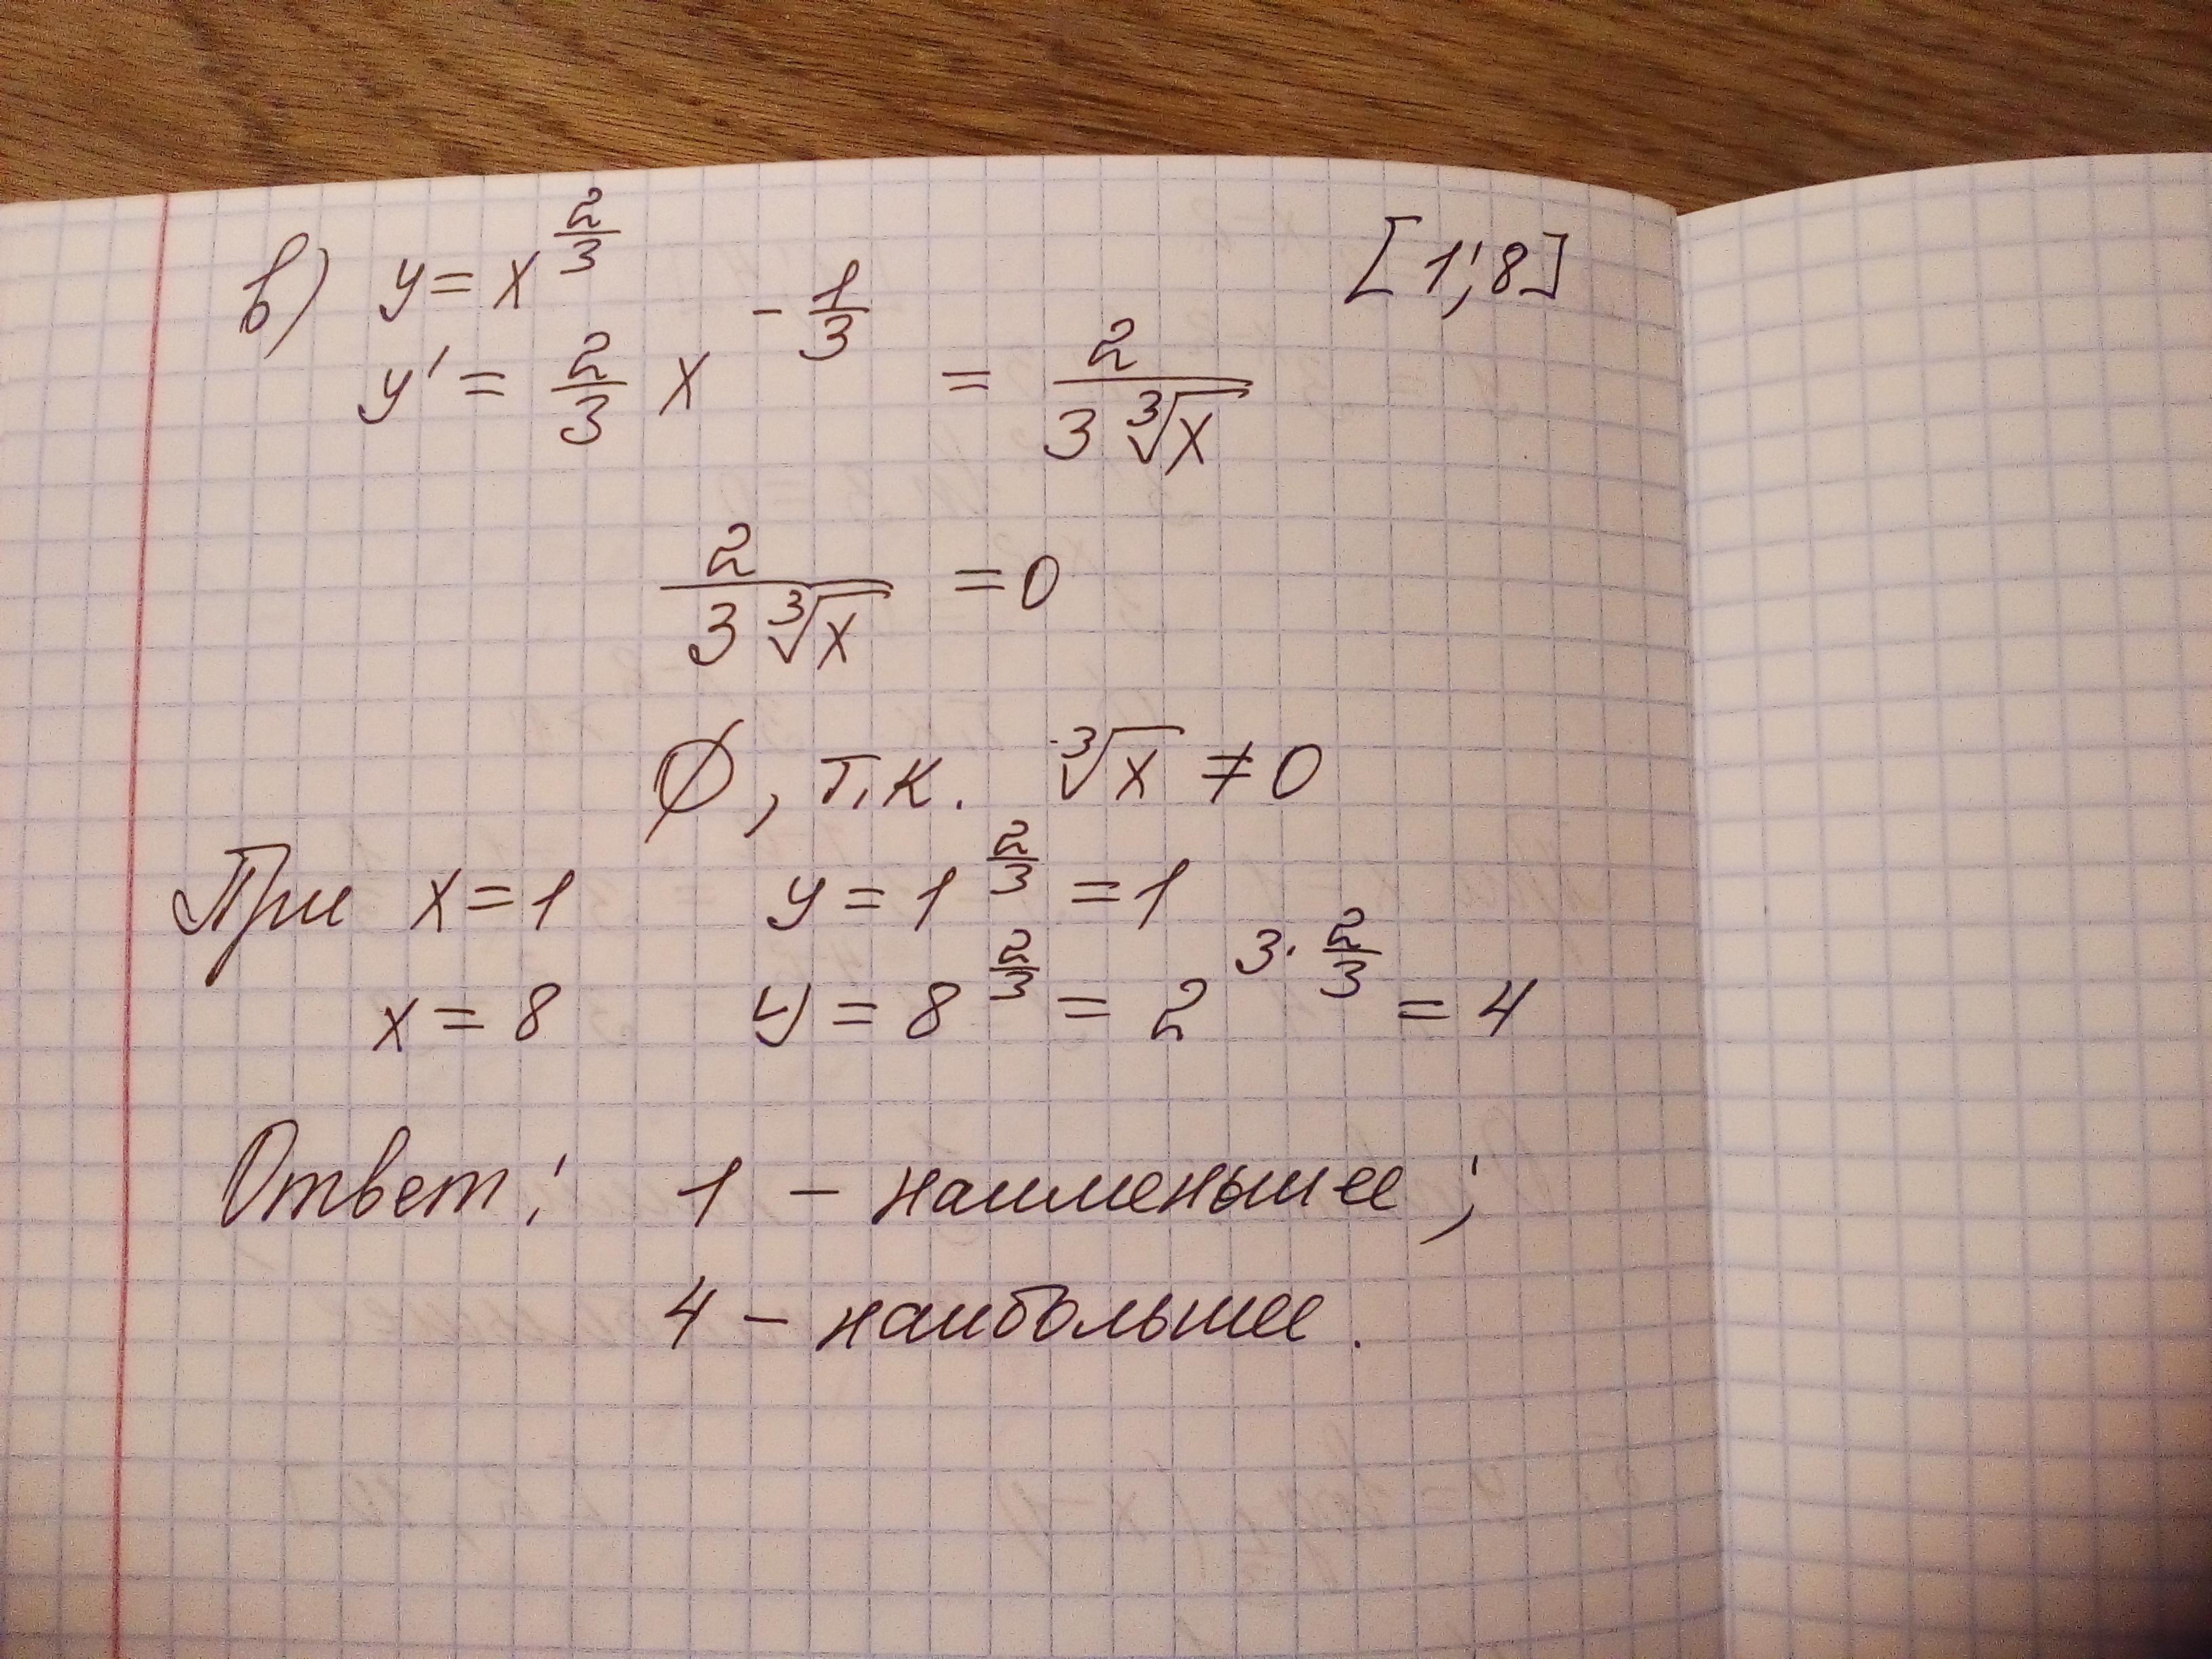 в) y = x^(2/3) [1; 8]
y' = 2/3 x^(-1/3) = 2/(3∛x)
2/(3∛x) = 0
∅, т.к. ∛x ≠ 0
При x = 1 y = 1^(2/3) = 1
x = 8 y = 8^(2/3) = 2^(3·2/3) = 4
Ответ: 1 – наименьшее;
4 – наибольшее.